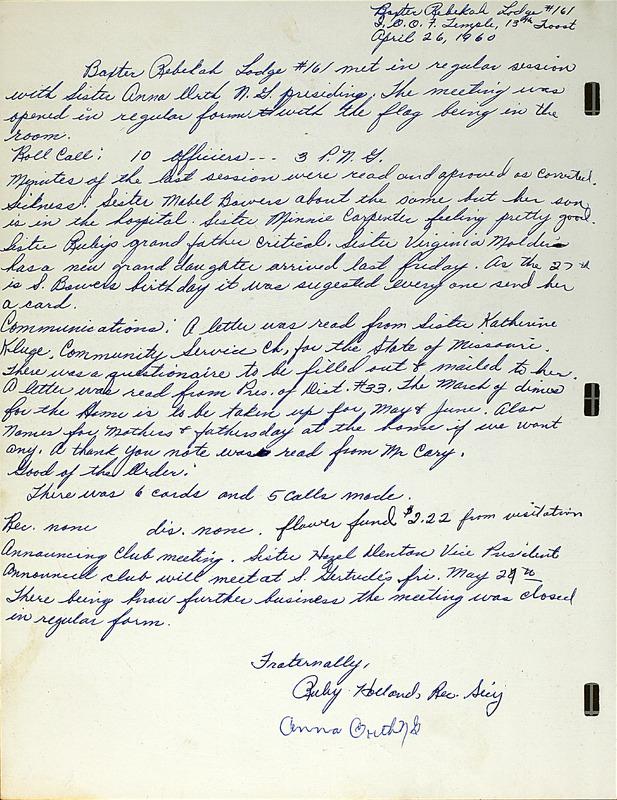 Baxter Rebekah Lodge #161
I.O.O.F. Temple, 13th & Troost
April 26, 1960
Baxter Rebekah Lodge #161 met in regular session
with Sister Anna Orth N.G. presiding. The meeting was
opened in regular form with the flag being in the
room.
Roll Call: 10 officiers... 3 P.N.G.
Minutes of the last session were read and aproved as corrected.
Sickness: Sister Mebel Bowers about the same but her son
is in the hospital. Sister Minnie Carpenter feeling pretty good.
Sister Ruby's grand father critical. Sister Virginia Molder
has a new grand daughter arrived last friday. As the 27th
is S. Bowers birthday it was sugested every one send her
a card.
Communications: A letter was read from Sister Katherine
Kluge, Community Service Ch, for the State of Missouri.
There was a questionaire to be filled out & mailed to her.
A letter was read from Pres. of Dist. #33. The March of dimes
for the Home is to be taken up for May & June. Also
names for Mothers & fathersday at the home if we want
any. A thank you note was read from Mr Cary.
Good of the Order:
There was 6 cards and 5 calls made.
Rec. none dis. none. flower fund $2.22 from visitation
Announcing Club meeting. Sister Hazel Denton Vice President
announced club will meet at S. Gertrudis fri. May 27th
There being know further business the meeting was closed
in regular form.
Fraternally,
Ruby Holland, Rec. Sec'y
Anna Orth NG